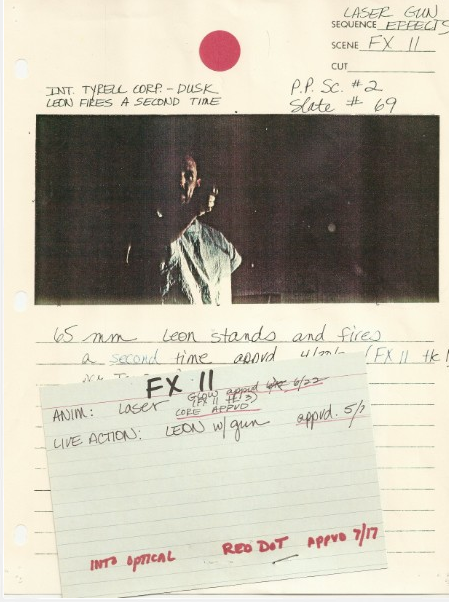 LASER GUN
SEQUENCE EFFECTS
SCENE FX 11
CUT
INT. TYRELL CORP. - DUSK
LEON FIRES A SECOND TIME
P.P. Sc. #2
Slate # 69
65 mm Leon stands and fires
a second time appvd (FX 11 tk 1
FX 11
ANIM: Laser Glow appvd 6/22
(FX 11 tk 3)
CORE APPVD
LIVE ACTION: LEON w/gun appvd. 5/7
INTO OPTICAL RED DOT APPVD 7/17